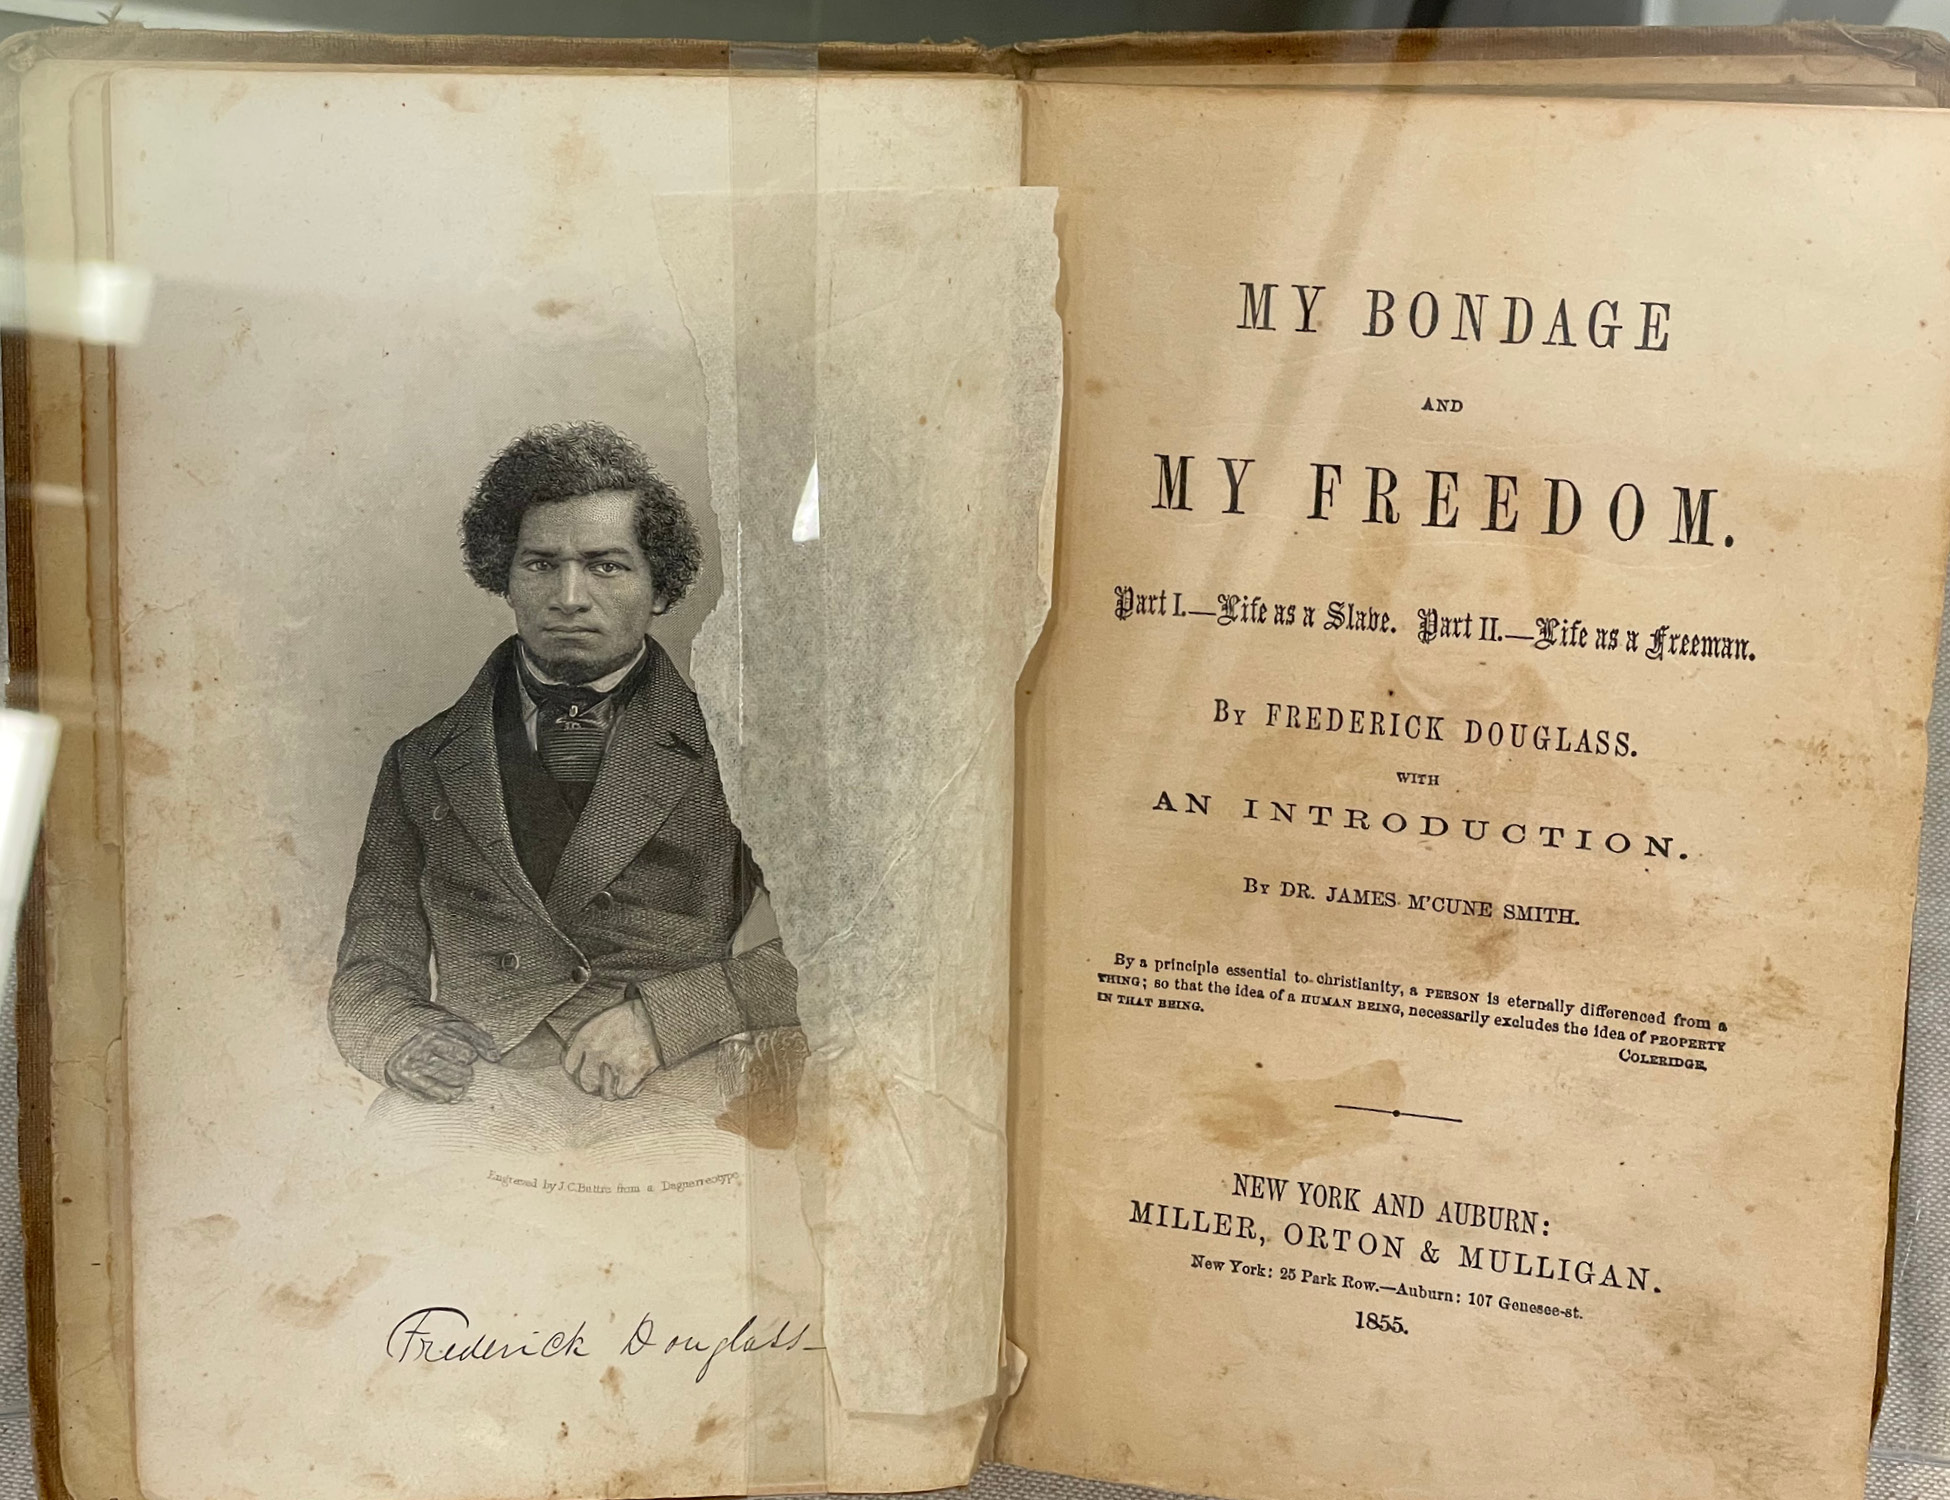 Engraved by J.C.Buttre from a Daguerreotype
Frederick Douglass
MY BONDAGE
AND
MY FREEDOM.
Part I.—Life as a Slave. Part II.—Life as a Freeman.
By FREDERICK DOUGLASS.
WITH
AN INTRODUCTION.
By DR. JAMES M'CUNE SMITH.
By a principle essential to christianity, a PERSON is eternally differenced from a
THING; so that the idea of a HUMAN BEING, necessarily excludes the idea of PROPERTY
IN THAT BEING.
COLERIDGE.
NEW YORK AND AUBURN:
MILLER, ORTON & MULLIGAN.
New York: 25 Park Row.—Auburn: 107 Genesee-st.
1855.